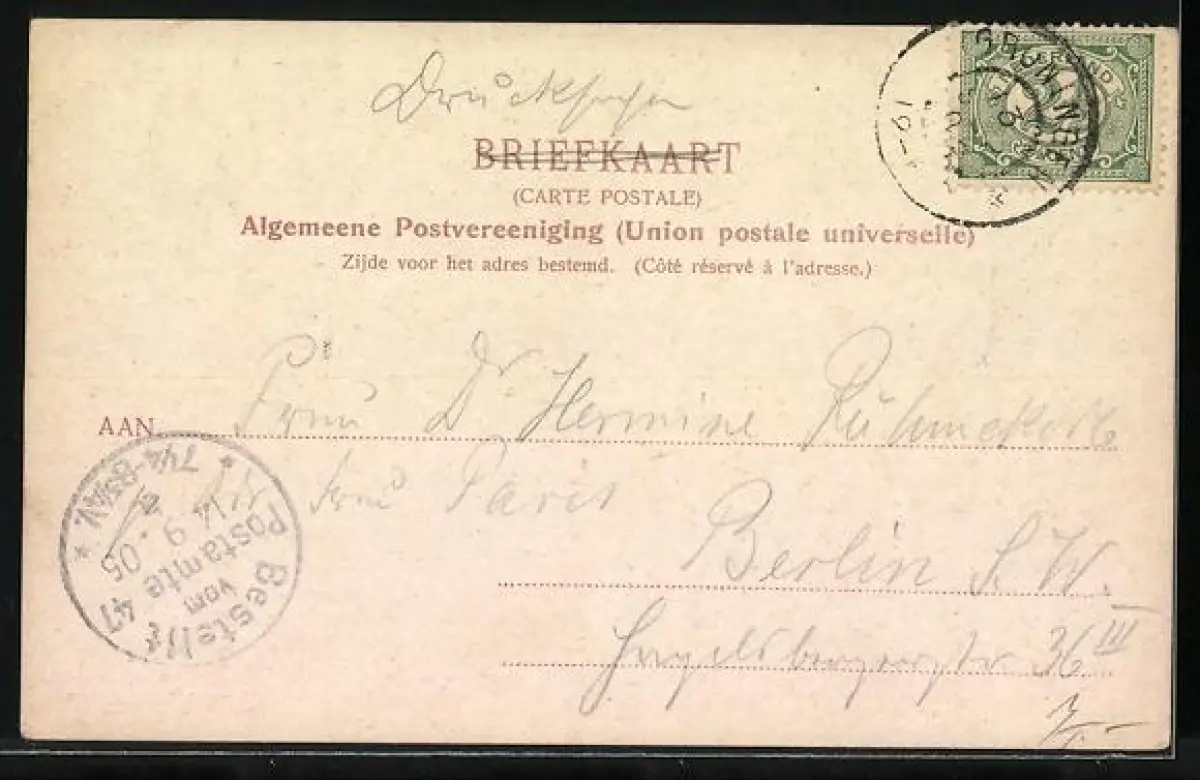 Drucksache
BRIEFKAART
(CARTE POSTALE)
Algemeene Postvereeniging (Union postale universelle)
Zijde voor het adres bestemd. (Côté réservé à l'adresse.)
GRONINGEN
AAN Frau Dr Hermine
Frau Paris
Berlin S. W.
36 III
Bestellt
vom
Postamte 47
14 9. 05
7¼-8¾V.